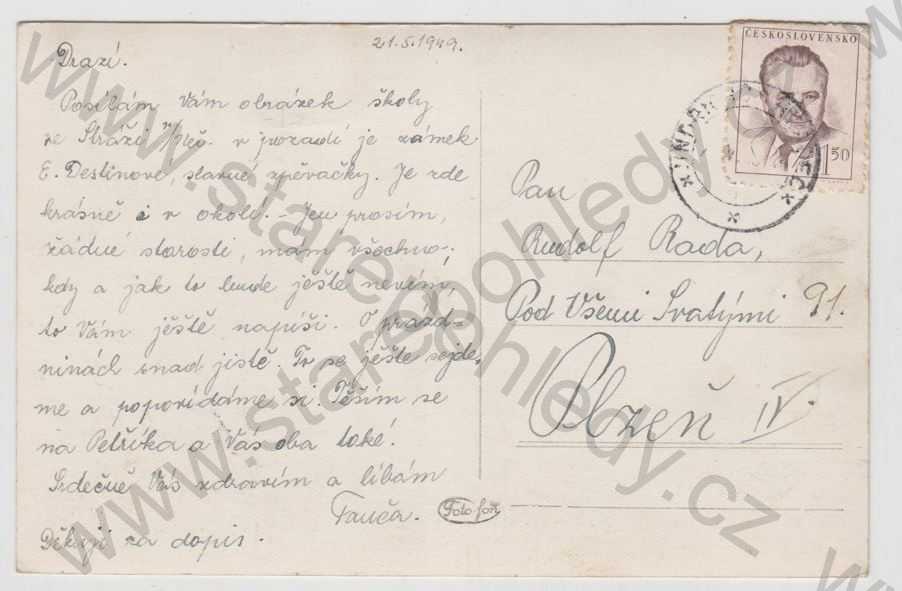 21.5.1949.
Drazí.
Posílám Vám obrázek školy
ve Stráži n/Než. v pozadí je zámek
E. Destinové, slavné zpěvačky. Je zde
krásně i v okolí. - Jen prosím,
žádné starosti, mám všechno;
kdy a jak to bude ještě nevím,
to Vám ještě napíši. O prázd-
ninách snad jistě. To se ještě sejde-
me a popovídáme si. Těším se
na Petříka a Vás oba také!
Srdečně Vás zdravím a líbám
Děkuji za dopis.
Foto-fon
ČESKOSLOVENSKO
1 50
Pan
Rudolf Rada,
Pod Všemi Svatými 91.
Plzeň IV.
www.starepohledy.cz
www.starepohledy.cz